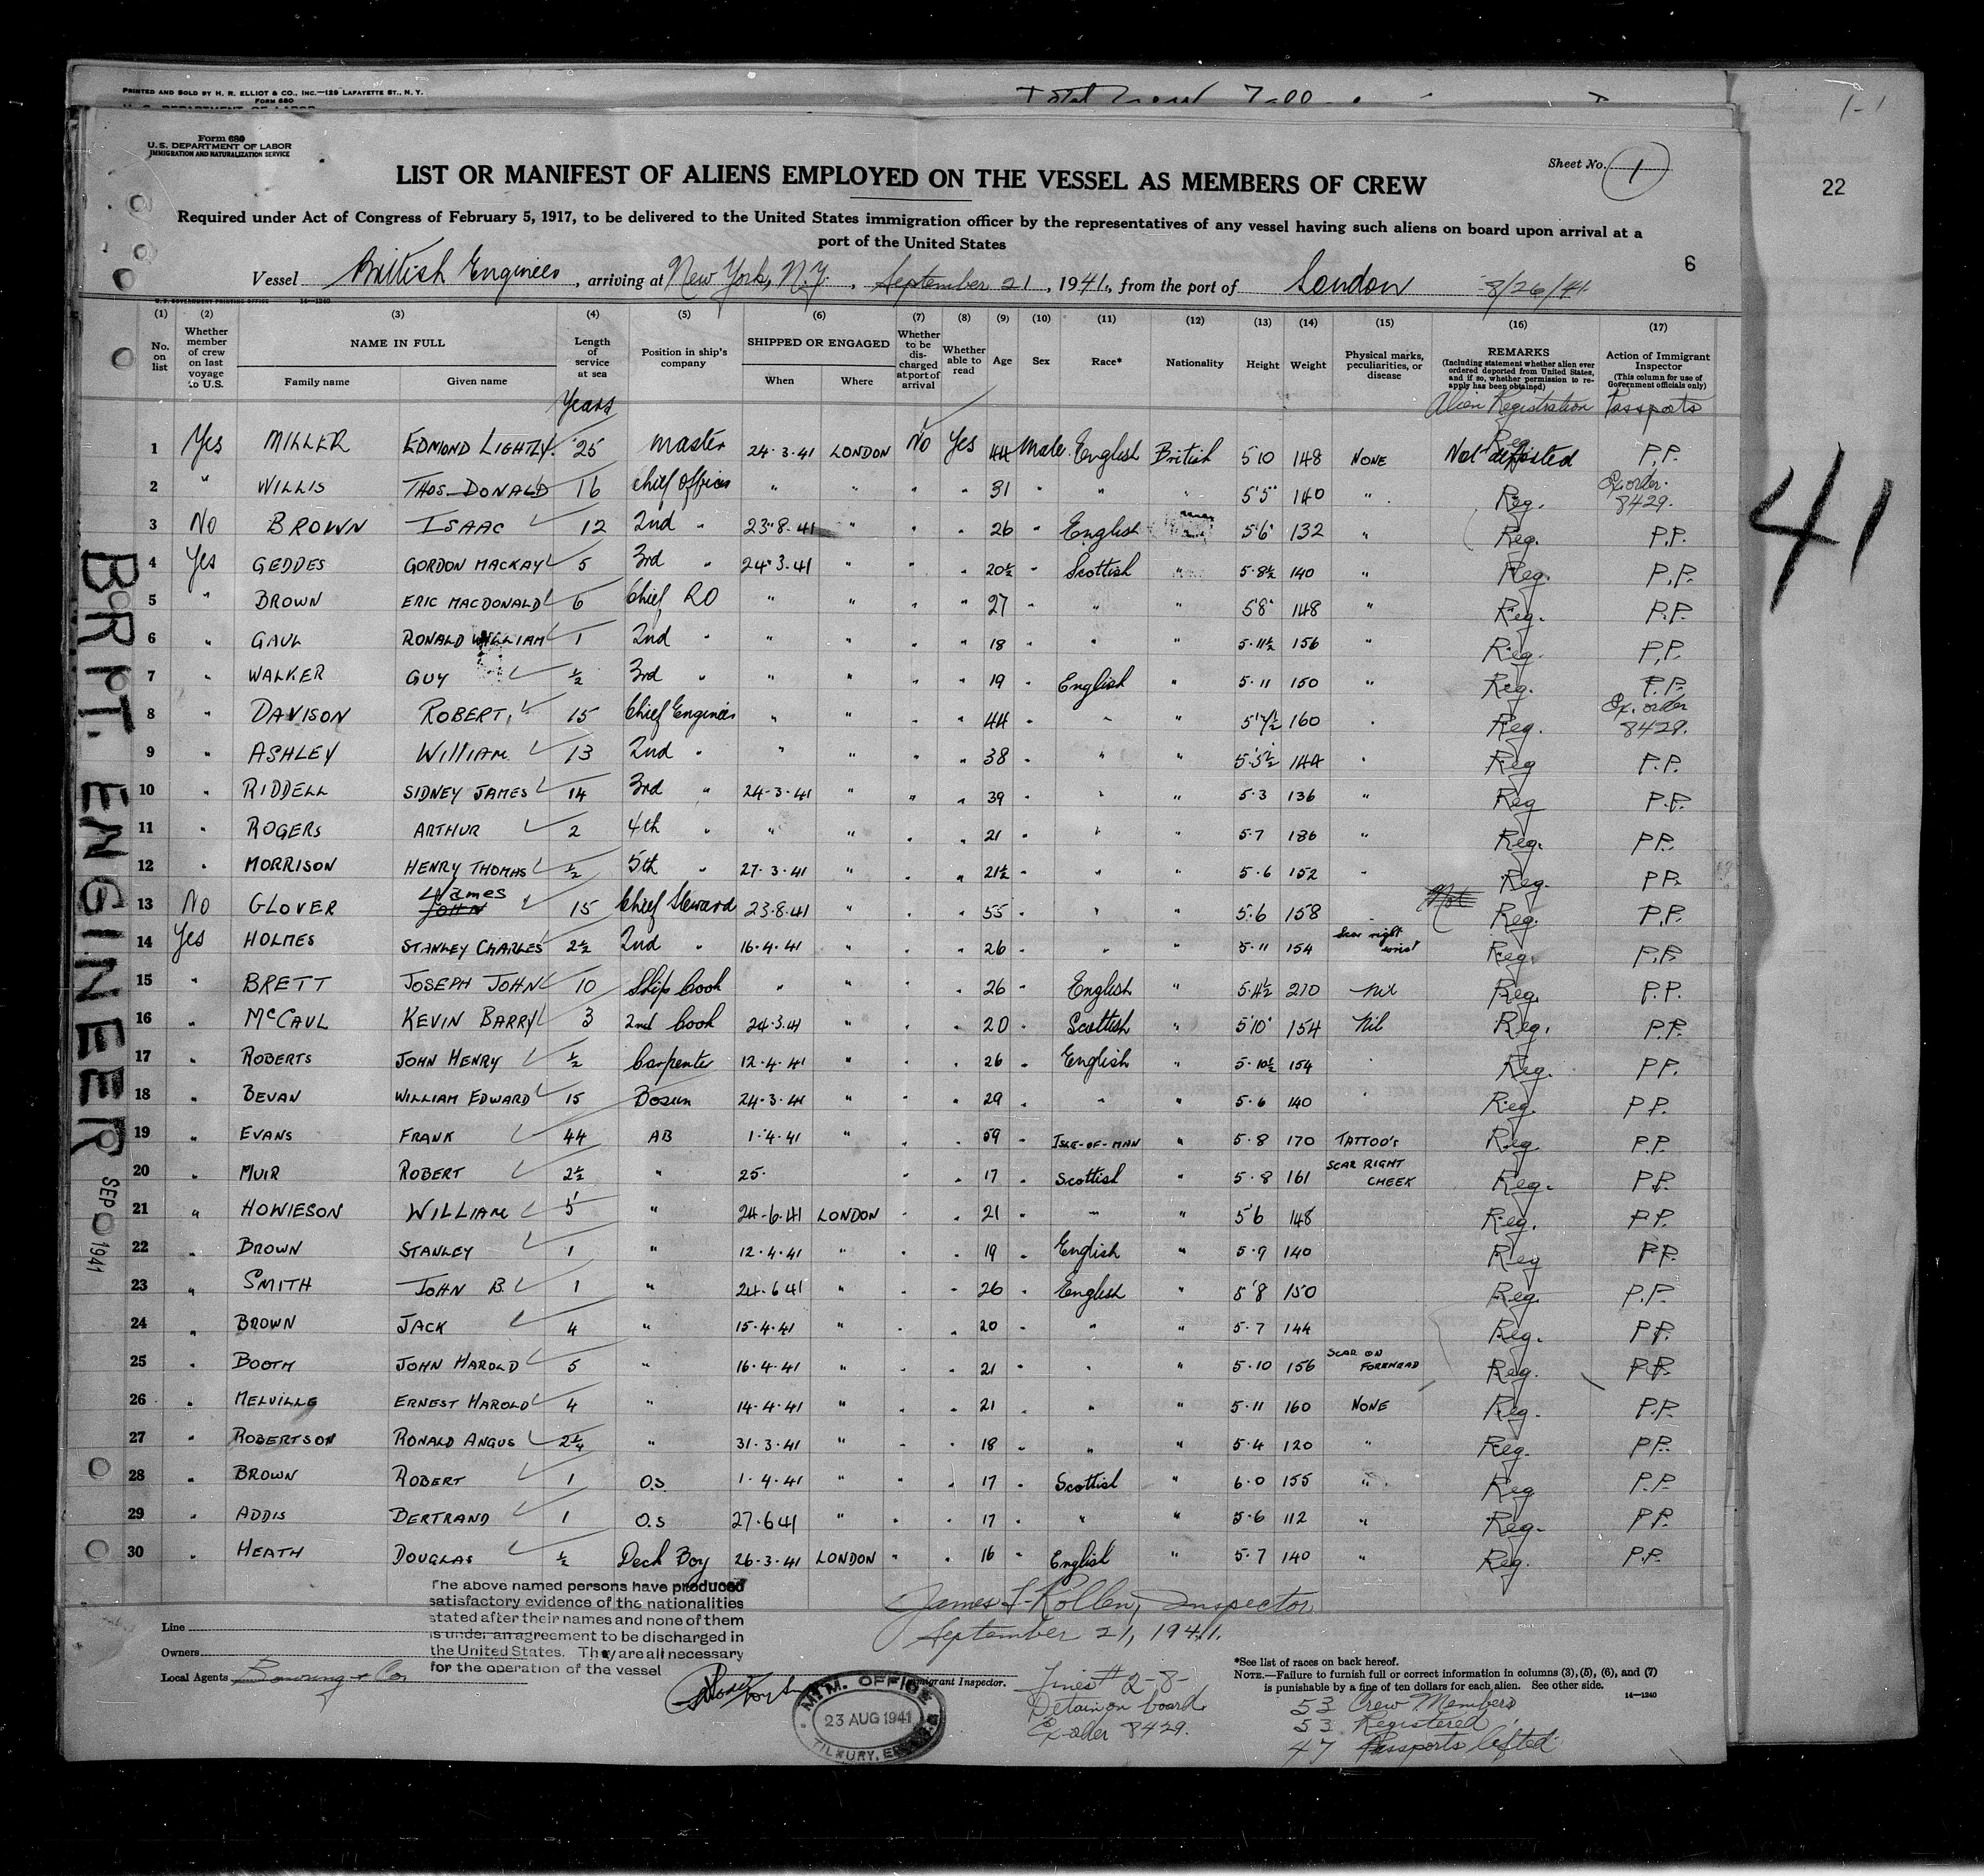 PRINTED AND SOLD BY H. R. ELLIOT & CO., INC.—129 LAFAYETTE ST., N. Y.
FORM 680
1-1
22
41
Form 680
U.S. DEPARTMENT OF LABOR
IMMIGRATION AND NATURALIZATION SERVICE
Sheet No. 1
LIST OR MANIFEST OF ALIENS EMPLOYED ON THE VESSEL AS MEMBERS OF CREW
Required under Act of Congress of February 5, 1917, to be delivered to the United States immigration officer by the representatives of any vessel having such aliens on board upon arrival at a
port of the United States
6
Vessel British Engineer, arriving at New York, N.Y., September 21, 1941, from the port of London 8/26/41
U.S. GOVERNMENT PRINTING OFFICE 14—1240
(1) (2) (3) (4) (5) (6) (7) (8) (9) (10) (11) (12) (13) (14) (15) (16) (17)
No. on list
Whether member of crew on last voyage to U.S.
NAME IN FULL
Family name Given name
Length of service at sea
Years
Position in ship's company
SHIPPED OR ENGAGED
When Where
Whether to be discharged at port of arrival
Whether able to read
Age Sex Race* Nationality Height Weight
Physical marks, peculiarities, or disease
REMARKS
(Including statement whether alien ever ordered deported from United States, and if so, whether permission to reapply has been obtained)
Alien Registration
Action of Immigrant Inspector
(This column for use of Government officials only)
Passports
1 Yes MILLER EDMOND LIGHTLY 25 Master 24·3·41 LONDON No Yes 44 Male English British 5 10 148 NONE Not deported Reg. P.P.
2 " WILLIS THOS. DONALD 16 Chief Officer " " " " 31 " " " 5'5" 140 " Reg. Ex. order 8429.
3 No BROWN ISAAC 12 2nd " 23·8·41 " " " 26 " English 5'6" 132 " Reg. P.P.
4 Yes GEDDES GORDON MACKAY 5 3rd " 24·3·41 " " " 20½ " Scottish " 5·8½ 140 " Reg. P.P.
5 " BROWN ERIC MACDONALD 6 Chief RO " " " " 27 " " " 5'8" 148 " Reg. P.P.
6 " GAUL RONALD WILLIAM 1 2nd " " " " " 18 " " " 5·11½ 156 " Reg. P.P.
7 " WALKER GUY ½ 3rd " " " " " 19 " English " 5·11 150 " Reg. P.P.
8 " DAVISON ROBERT 15 Chief Engineer " " " " 44 " " " 5'7½ 160 " Reg. Ex. order 8429.
9 " ASHLEY WILLIAM 13 2nd " " " " " 38 " " " 5·5½ 144 " Reg P.P.
10 " RIDDELL SIDNEY JAMES 14 3rd " 24·3·41 " " " 39 " " " 5·3 136 " Reg P.P.
11 " ROGERS ARTHUR 2 4th " " " " " 21 " " " 5·7 186 " Reg. P.P.
12 " MORRISON HENRY THOMAS ½ 5th " 27·3·41 " " " 21½ " " " 5·6 152 " Reg. P.P.
13 No GLOVER JOHN James 15 Chief Steward 23·8·41 " " " 55 " " " 5·6 158 " Not Reg. P.P.
14 Yes HOLMES STANLEY CHARLES 2½ 2nd " 16·4·41 " " " 26 " " " 5·11 154 Scar right wrist Reg. P.P.
15 " BRETT JOSEPH JOHN 10 Ship Cook " " " " 26 " English " 5·11½ 210 Nil Reg. P.P.
16 " McCAUL KEVIN BARRY 3 2nd Cook 24·3·41 " " " 20 " Scottish " 5'10" 154 Nil Reg. P.P.
17 " ROBERTS JOHN HENRY ½ Carpenter 12·4·41 " " " 26 " English " 5·10½ 154 " Reg. P.P.
18 " BEVAN WILLIAM EDWARD 15 Bosun 24·3·41 " " " 29 " " " 5·6 140 " Reg. P.P.
19 " EVANS FRANK 44 AB 1·4·41 " " " 59 " ISLE-OF-MAN " 5·8 170 TATTOO'S Reg. P.P.
20 " MUIR ROBERT 2½ " 25· " " 17 " Scottish " 5·8 161 SCAR RIGHT CHEEK Reg. P.P.
21 " HOWIESON WILLIAM 5 " 24-6-41 LONDON " " 21 " " " 5'6 148 Reg. P.P.
22 " BROWN STANLEY 1 " 12·4·41 " " " 19 " English " 5·9 140 Reg P.P.
23 " SMITH JOHN B. 1 " 24·6 41 " " " 26 " English " 5'8 150 Reg. P.P.
24 " BROWN JACK 4 " 15·4·41 " " " 20 " " " 5·7 144 Reg. P.P.
25 " BOOTH JOHN HAROLD 5 " 16·4·41 " " " 21 " " " 5·10 156 SCAR ON FOREHEAD Reg. P.P.
26 " MELVILLE ERNEST HAROLD 4 " 14·4·41 " " " 21 " " " 5·11 160 NONE Reg. P.P.
27 " ROBERTSON RONALD ANGUS 2¼ " 31·3·41 " " " 18 " " " 5·4 120 " Reg. P.P.
28 " BROWN ROBERT 1 O.S. 1·4·41 " " " 17 " Scottish " 6·0 155 " Reg P.P.
29 " ADDIS BERTRAND 1 O.S 27·6 41 " " " 17 " " " 5·6 112 " Reg. P.P.
30 " HEATH DOUGLAS ½ Deck Boy 26·3·41 LONDON " " 16 " English " 5·7 140 " Reg. P.P.
BRIT. ENGINEER
SEP 1941
The above named persons have produced
satisfactory evidence of the nationalities
stated after their names and none of them
is under an agreement to be discharged in
the United States. They are all necessary
for the operation of the vessel
Line
Owners
Local Agents Bowring & Co.
Inspector
September 21, 1941.
Immigrant Inspector.
M.M. OFFICE
23 AUG 1941
TILBURY, ESSEX
Lines # 2-8-
Detain on board
Ex-order 8429.
*See list of races on back hereof.
NOTE.—Failure to furnish full or correct information in columns (3), (5), (6), and (7)
is punishable by a fine of ten dollars for each alien. See other side.
14—1240
53 Crew Members
53 Registered
47 Passports lifted